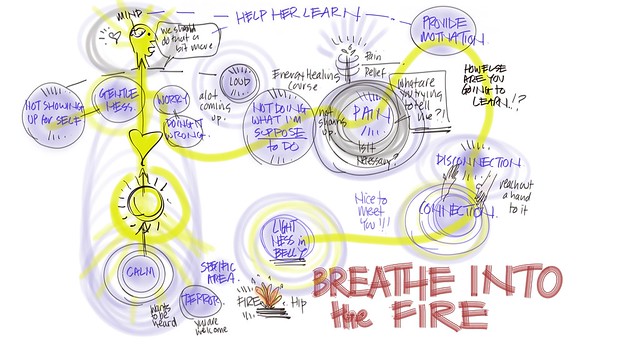 MIND
HELP HER LEARN
we should
do that a
bit more
PROVIDE
MOTIVATION
HOW ELSE
ARE YOU
GOING to
LEARN!?
Pain
Relief
Energy Healing
Course
LOUD
a lot
coming
up.
NOT SHOWING
UP for SELF
GENTLE
NESS.
WORRY
DOING IT
WRONG.
NOT DOING
WHAT I'M
SUPPOSE
to DO
not showing
up.
PAIN
Is it
necessary?
what are
you trying
to tell
me?!
DISCONNECTION
reach out
a hand
to it
CONNECTION
Nice to
meet
You!!!
LIGHT
NESS in
BELLY
CALM
wants
to be
heard
SPECIFIC
AREA.
TERROR
you are
welcome
FIRE
Hip
BREATHE INTO
the FIRE